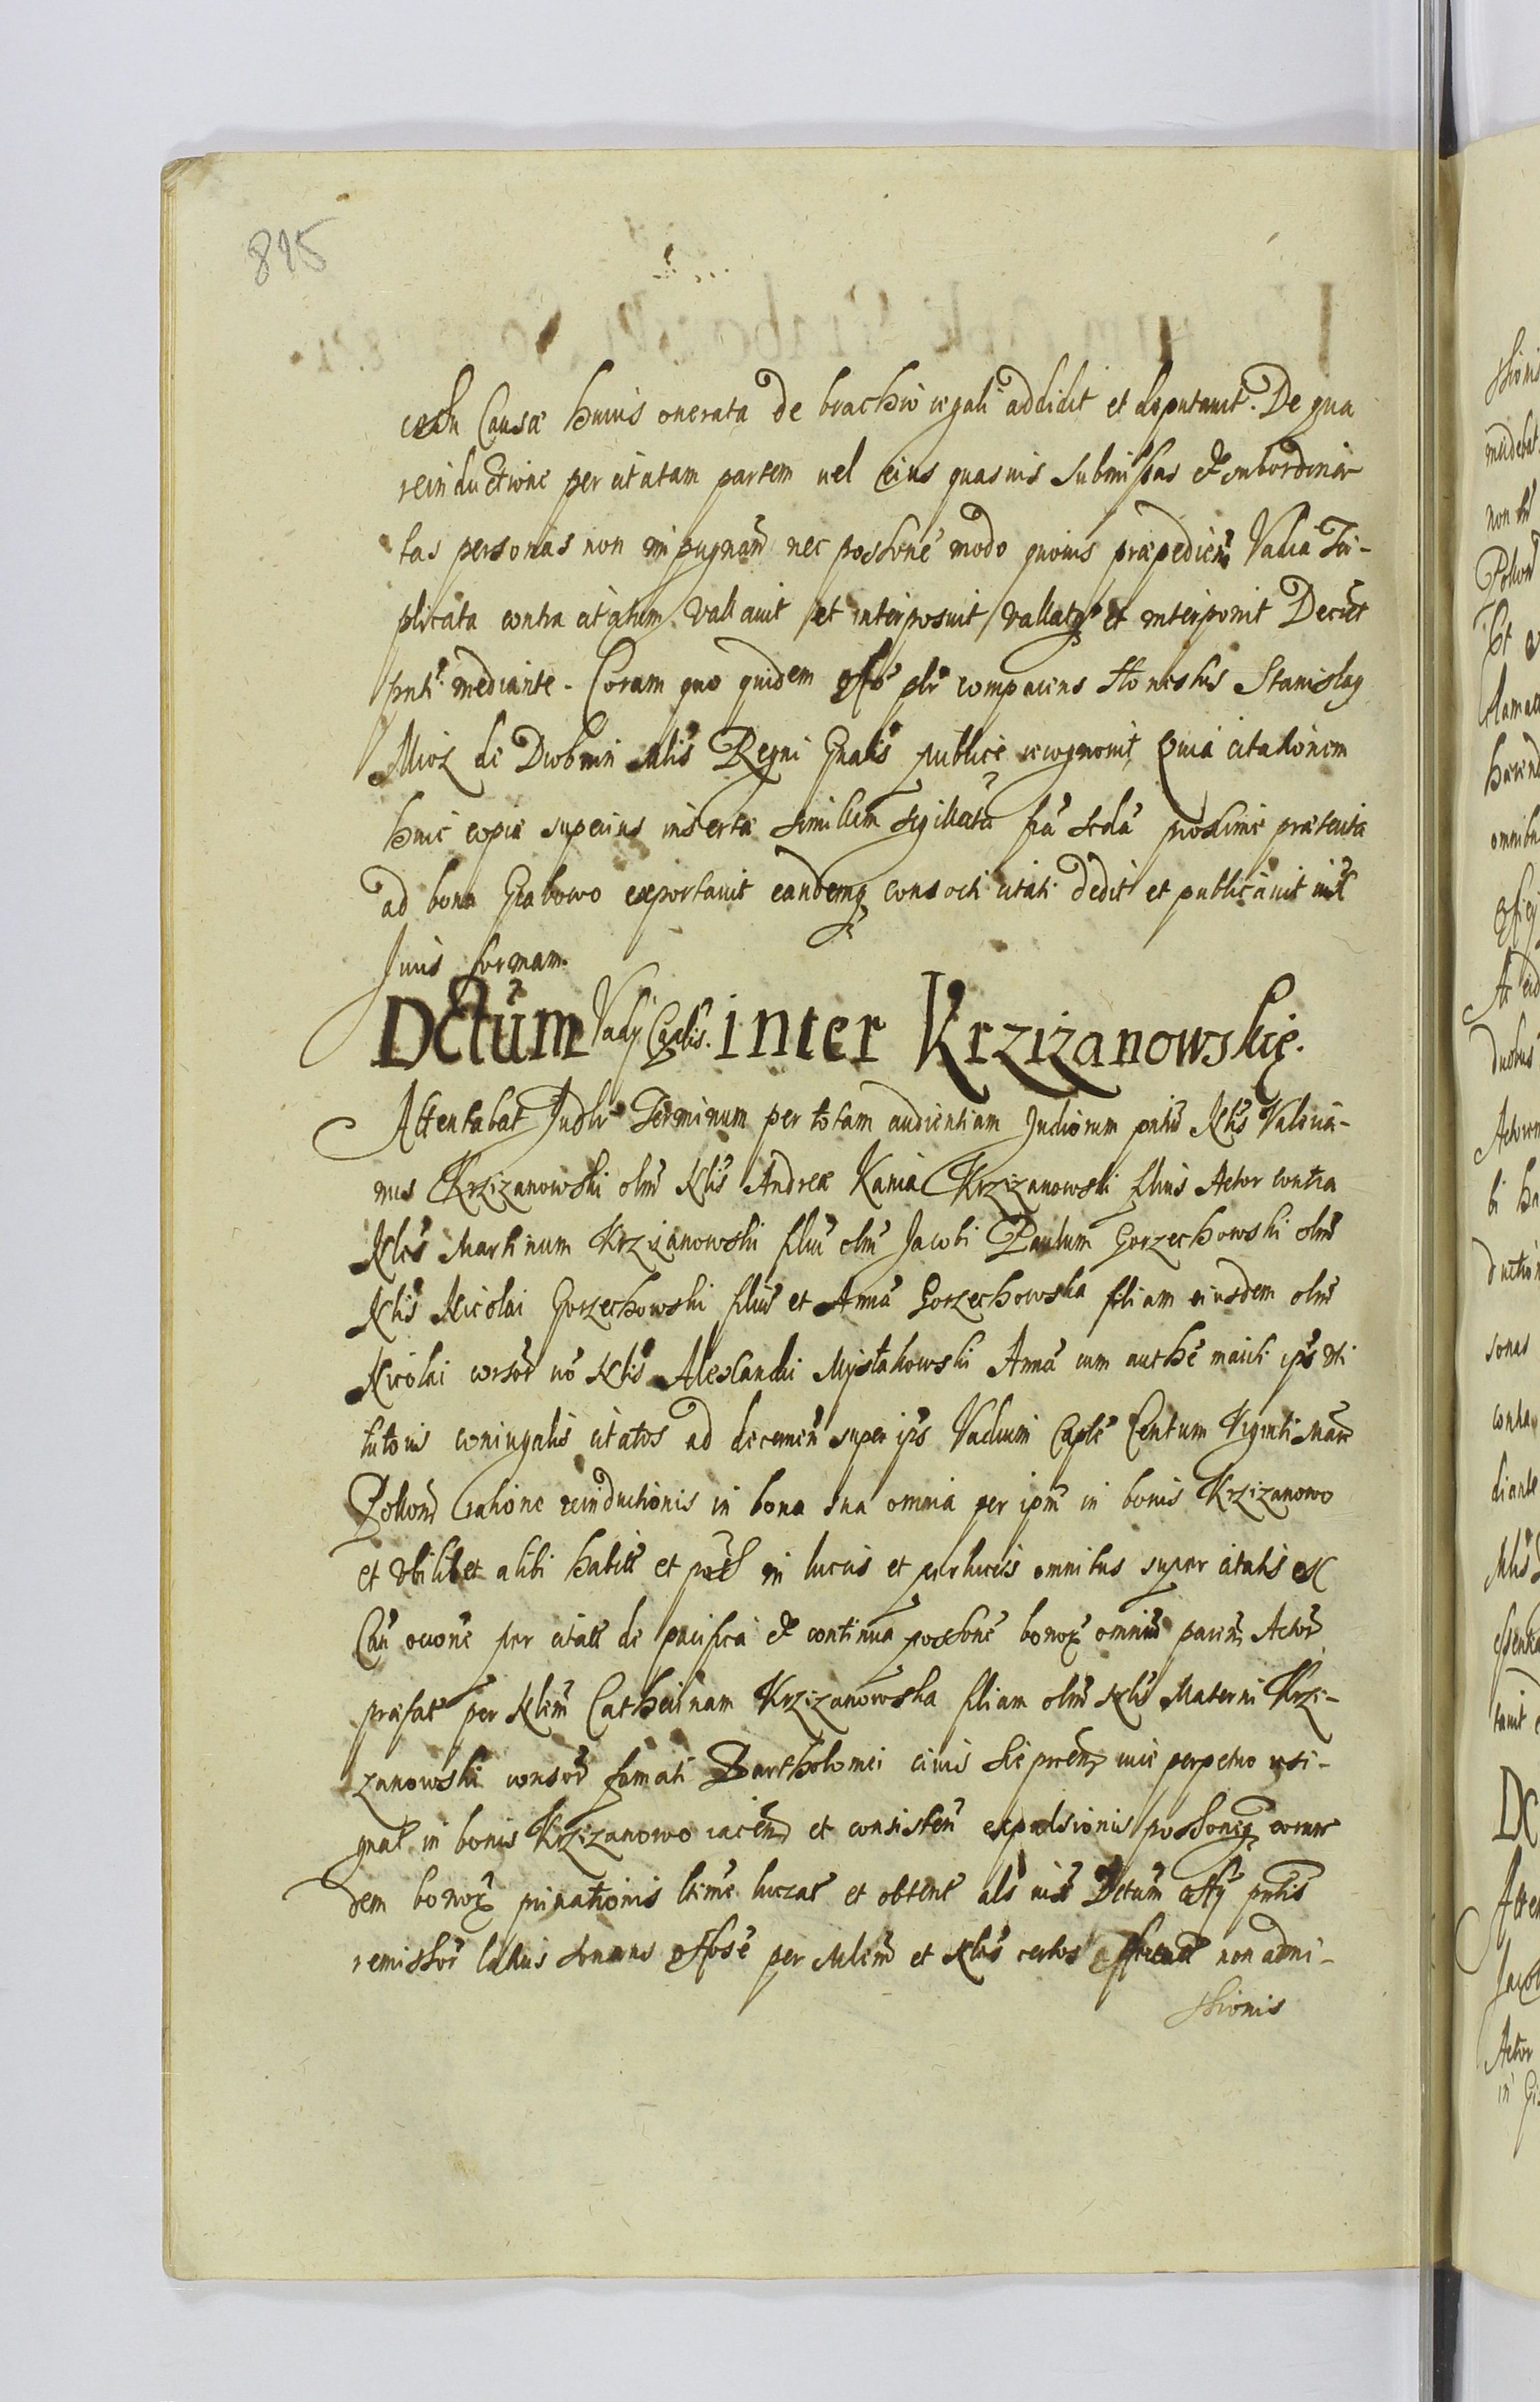 815
Causæ huius onerata de brachio regali addidit et deputauit. De qua
reinductione per citatam partem uel eius quasuis submissas et subordina-
tas personas non impugnan̄ nec possone modo quouis præpedien̄ Vadia Tri-
plicata contra citatum vallauit et interposuit, vallatq; et interponit Decret
pnti mediante. Coram quo quidem offo plr comparens Honestus Stanislaq
Mioz de Drobnin Mlis Regni Gnalis publice recognouit Quia citationem
huic copiæ superius insertæ similem sigillatā fria scda proxime præterita
ad bona Grabowo exportauit eandemq; consorti citati dedit et publicauit iux
Juris formam.
Dctum Vadij Caplis. inter Krzizanowskię.
Attentabat Judlr Terminum per totam audientiam Judiorum pntiu Nlis Valeria-
nus Krzizanowski olm Nlis Andreæ Kania Krzizanowski filius Actor contra
Nles Martinum Krzizanowski filiu olm Jacobi Paulum Gorzechowski olm
Nlis Nicolai Gorzechowski filiu et Annā Gorzechowska filiam eiusdem olm
Nicolai consor uo Nlis Alexandri Mystkowski Annā cum authe mariti ips vti
tutoris coniugalis citatos ad decernen super ips Vadium Caple Centum Viginti Marc
Pollon Ratione reinductionis in bona sua omnia per ipm in bonis Krzizanowo
et vbilibet alibi habit et in lucris et perlucris omnibus super citatis ex
Cau occone per citat de pacifica et continua possone bonor omniu patern Actor
præfat per Nlem Catherinam Krzizanowska filiam olm Nlis Materni Krzi-
zanowski consor famati Bartholomei ciuis Sieprcen iure perpetuo resi-
gnat in bonis Krzizanowo iacen et consisten expulsionis possonisq eorun-
dem bonor priuationis ltime lucrat et obtent als iux Dctum offij pntis
remissor latius sonans offose per Mlem et Nles certos non admi-
ssionis